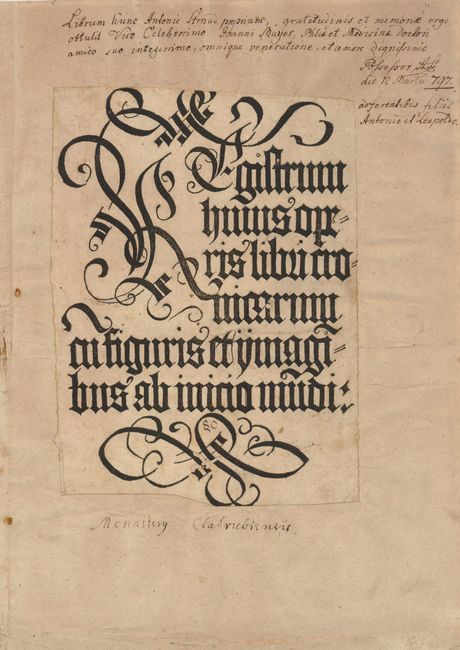 Librum hunc Antonii Strnad proprium, gratitudinis et memoriæ ergo
obtulit Viro Celeberimo Joanni Mayer, Phliæ et Medicinæ Doctori
amico suo integerimo, omnique veneratione, et amore dignissimo
Possessor
die 12 Martii 797.
filiis
Antonio et Leopoldo.
REgistrum
huius ope-
ris libri cro-
nicarum
cū figuris et ymagi-
bus ab inicio mūdi:
Monastery Cladrubiensis